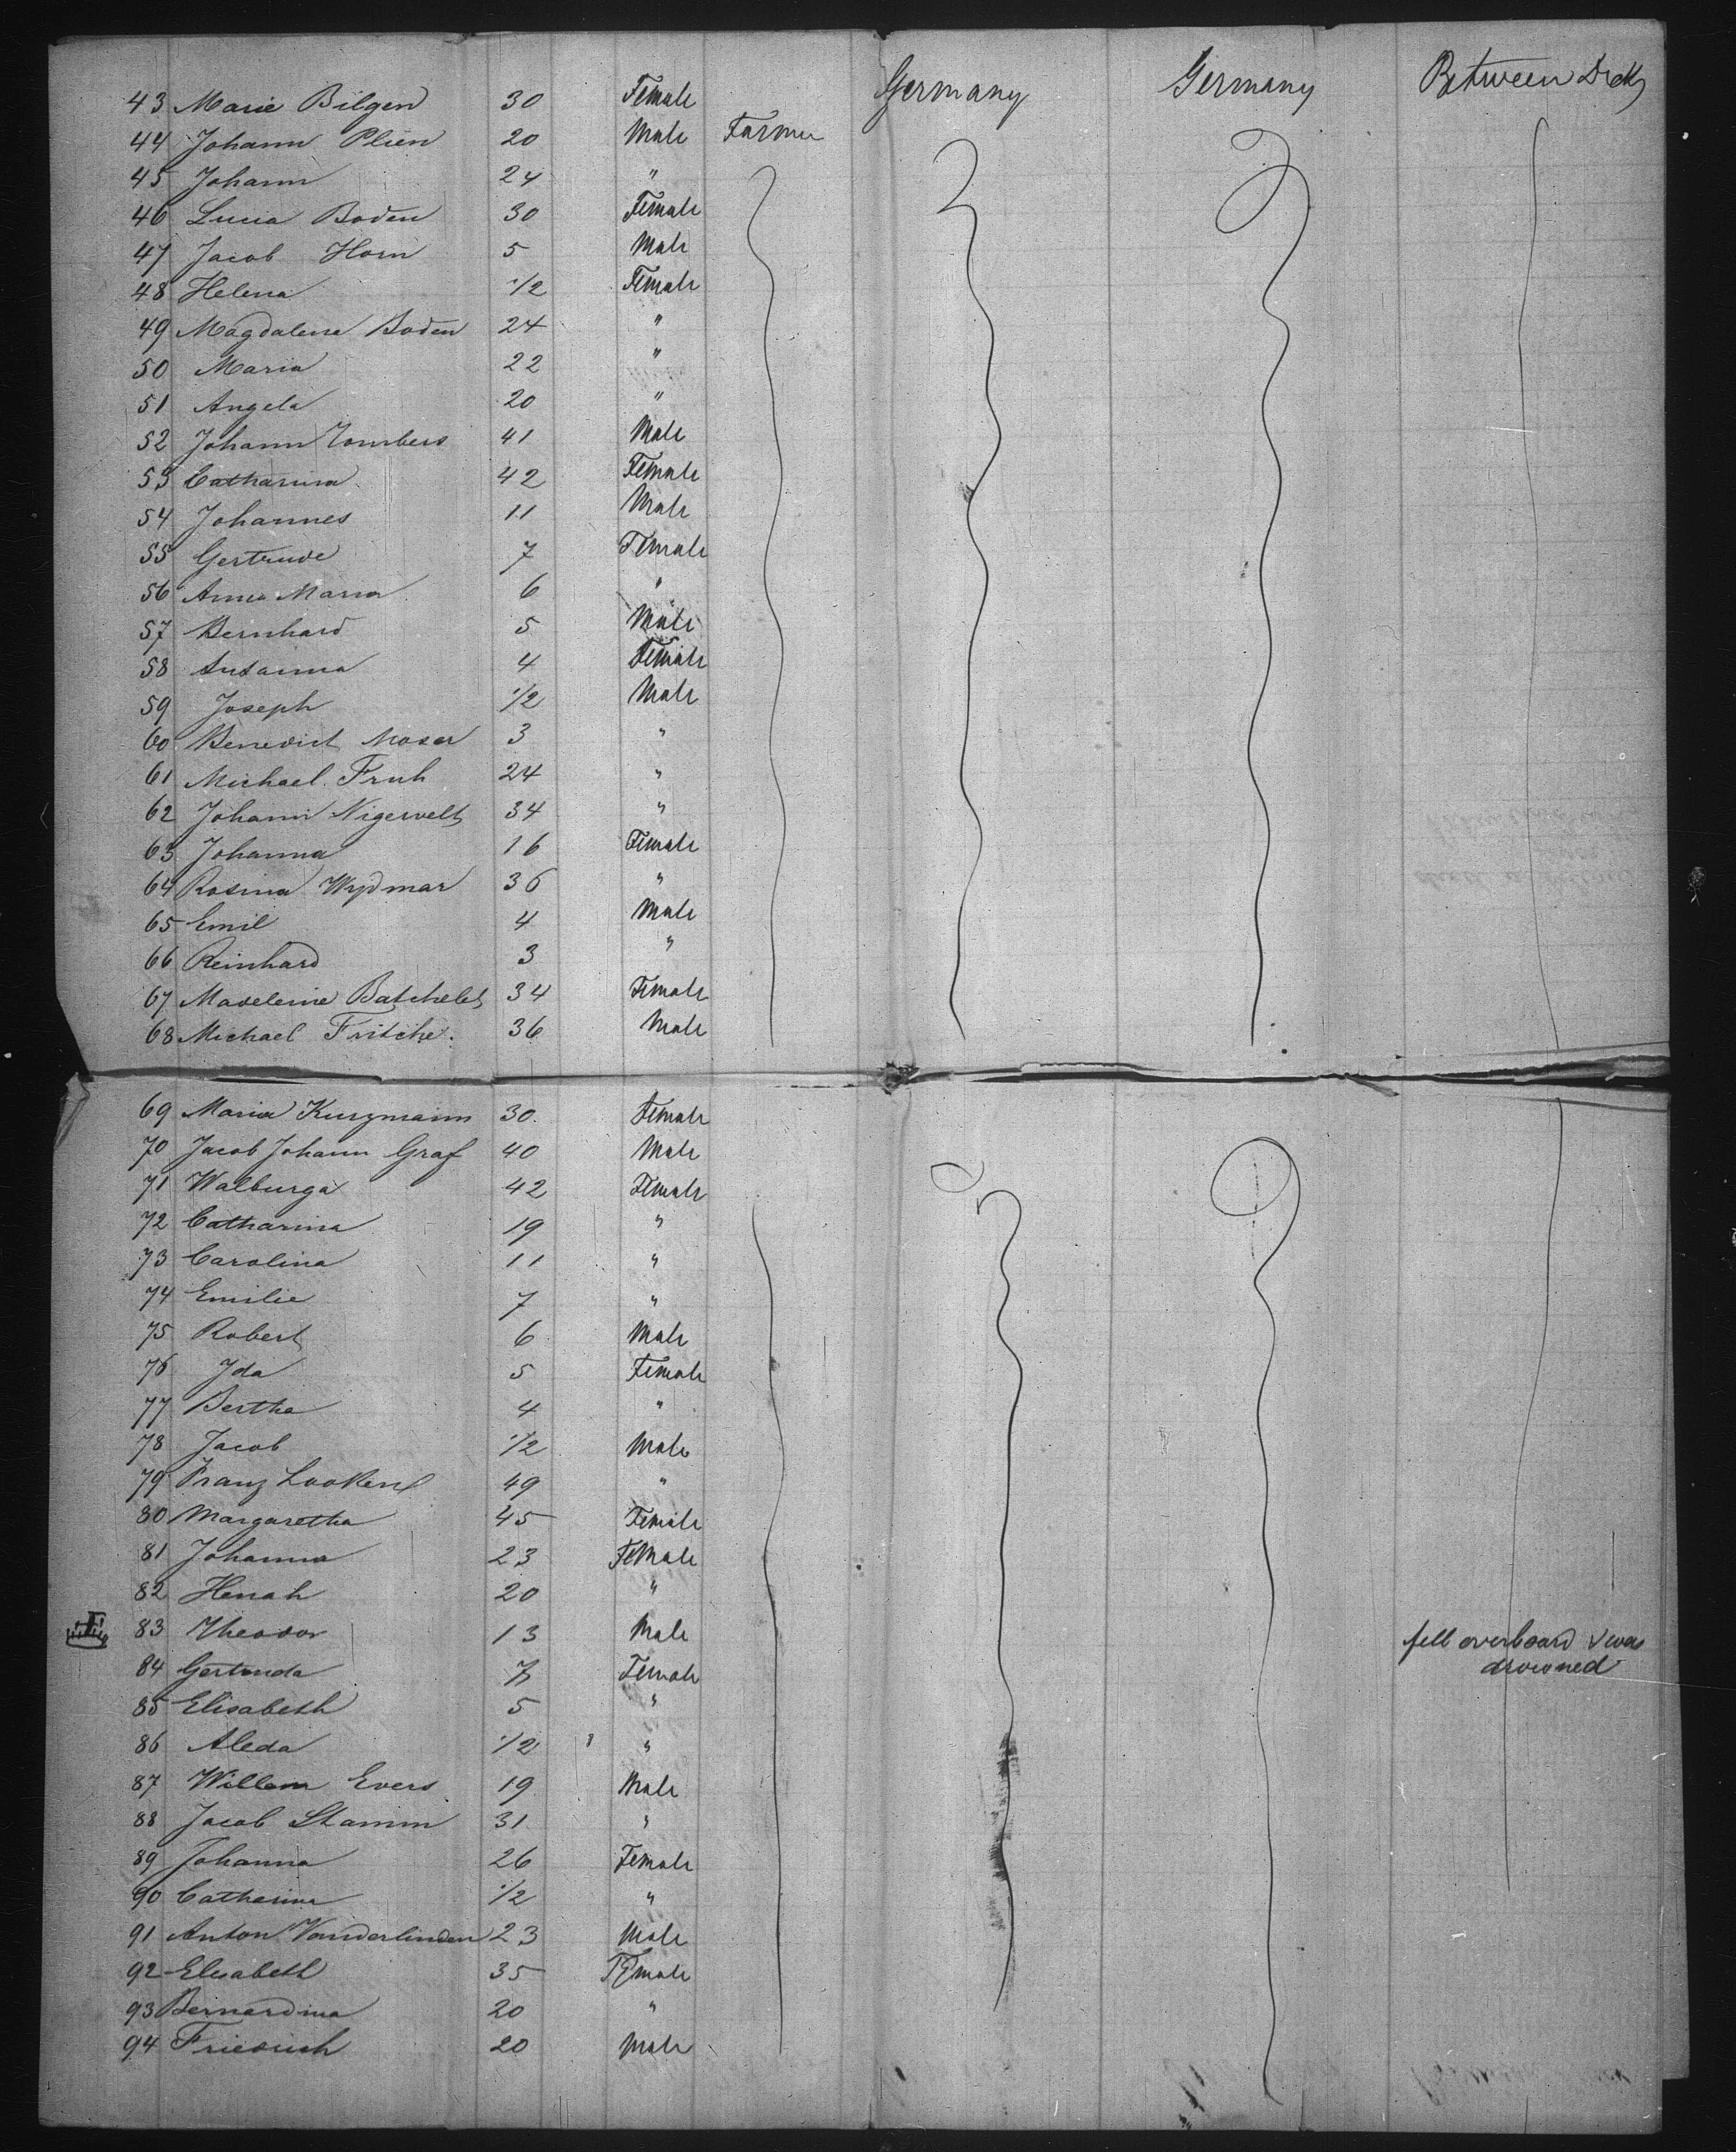 43 Marie Bilgen 30 Female Germany Germany Between Deck
44 Johann Plien 20 Male Farmer
45 Johann 24 "
46 Lucia Boden 30 Female
47 Jacob Horn 5 Male
48 Helena 1/2 Female
49 Magdalene Boden 24 "
50 Maria 22 "
51 Angela 20 "
52 Johann Tombers 41 Male
53 Catharina 42 Female
54 Johannes 11 Male
55 Gertrude 7 Female
56 Anna Maria 6 "
57 Bernhard 5 Male
58 Susanna 4 Female
59 Joseph 1/2 Male
60 Benedict Moser 3 "
61 Michael Fruh 24 "
62 Johann Nigervelt 34 "
63 Johanna 16 Female
64 Rosina Wydmar 36 "
65 Emil 4 Male
66 Reinhard 3 "
67 Madeleine Batchelet 34 Female
68 Michael Fritche. 36 Male
69 Maria Kurzmann 30. Female
70 Jacob Johann Graf 40 Male
71 Walburga 42 Female
72 Catharina 19 "
73 Carolina 11 "
74 Emilie 7 "
75 Robert 6 Male
76 Ida 5 Female
77 Bertha 4 "
78 Jacob 1/2 Male
79 Franz 49 "
80 Margaretha 45 Female
81 Johanna 23 Female
82 Henah 20 "
83 Theodor 13 Male fell overboard & was
drowned
84 7 Female
85 Elisabeth 5 "
86 Aleda 1/2 "
87 Willem Evers 19 Male
88 Jacob Stamm 31 "
89 Johanna 26 Female
90 Catharina 1/2 "
91 Anton Vanderlinden 23 Male
92 Elisabeth 35 Female
93 Bernardina 20 "
94 Friedrich 20 Male